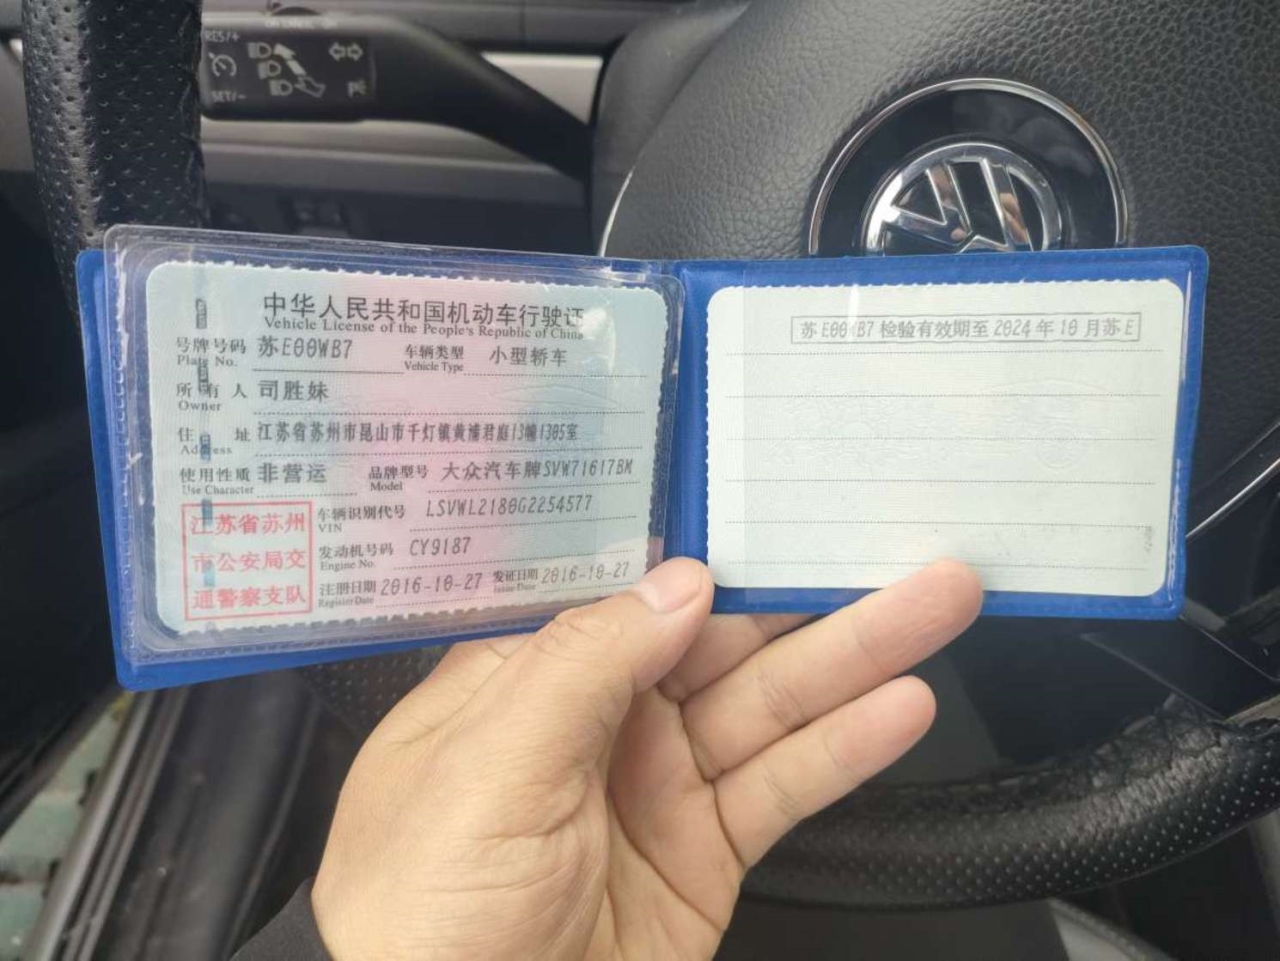 RES/+
SET/-
中华人民共和国机动车行驶证
Vehicle License of the People's Republic of China
号牌号码 苏E00WB7 车辆类型 小型轿车
Plate No. Vehicle Type
所有人 司胜妹
Owner
住址 江苏省苏州市昆山市千灯镇黄浦君庭13幢1305室
Address
使用性质 非营运 品牌型号 大众汽车牌SVW71617BM
Use Character Model
江苏省苏州
市公安局交
通警察支队
车辆识别代号 LSVWL2180G2254577
VIN
发动机号码 CY9187
Engine No.
注册日期 2016-10-27 发证日期 2016-10-27
Register Date Issue Date
苏E00WB7检验有效期至2024年10月苏E